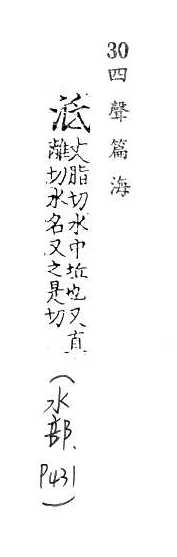 30 四聲篇海
泜
丈脂切水中坻也又直
離切水名又之是切
(水部、P431)